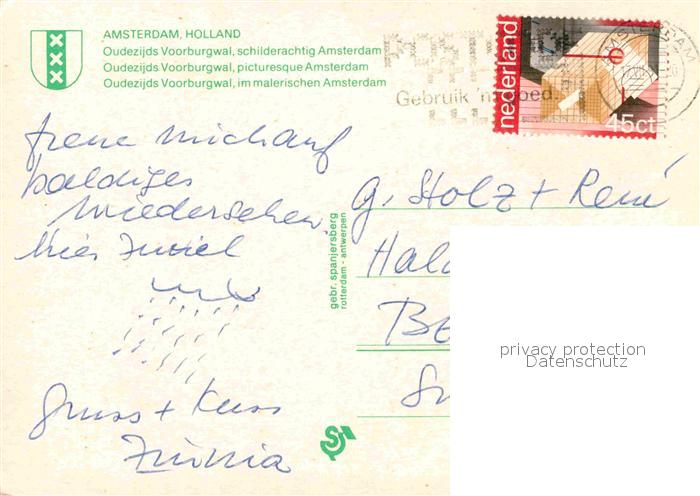 AMSTERDAM, HOLLAND
Oudezijds Voorburgwal, schilderachtig Amsterdam
Oudezijds Voorburgwal, picturesque Amsterdam
Oudezijds Voorburgwal, im malerischen Amsterdam
nederland
45ct
AMSTERDAM
Gebruik 'm goed.
freue mich auf
baldiges
Wiedersehen.
hier
Gruss + Kuss
G. Stolz + René
gebr. spanjersberg
rotterdam - antwerpen
privacy protection
Datenschutz